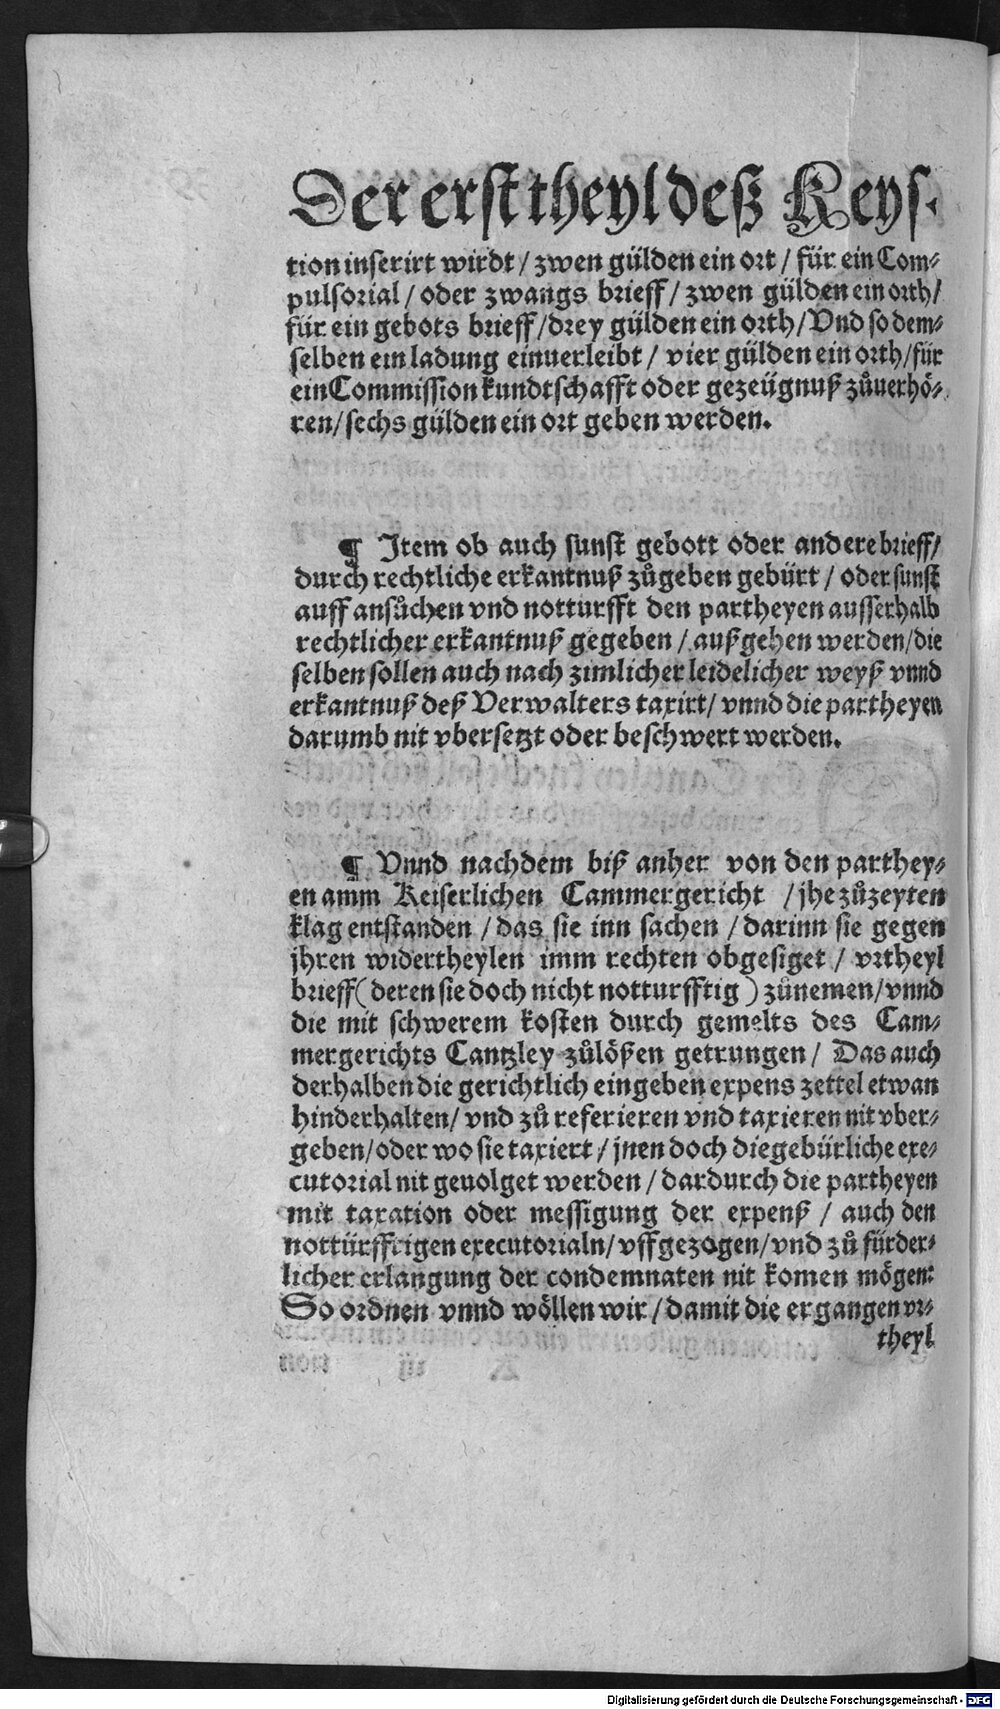 Der erst theyl deß Keys.
tion inserirt wirdt / zwen gülden ein ort / für ein Com-
pulsorial / oder zwangs brieff / zwen gülden ein orth /
für ein gebots brieff / drey gülden ein orth / Vnd so dem-
selben ein ladung einuerleibt / vier gülden ein orth / für
ein Commission kundtschafft oder gezeügnuß zůuerhö-
ren / sechs gülden ein ort geben werden.
¶ Item ob auch sunst gebott oder andere brieff /
durch rechtliche erkantnuß zůgeben gebürt / oder sunst
auff ansůchen vnd notturfft den partheyen ausserhalb
rechtlicher erkantnuß gegeben / außgehen werden / die
selben sollen auch nach zimlicher leidelicher weyß vnnd
erkantnuß deß Verwalters taxirt / vnnd die partheyen
darumb nit vbersetzt oder beschwert werden.
¶ Vnnd nachdem biß anher von den parthey-
en amm Keiserlichen Cammergericht / jhe zůzeyten
klag entstanden / das sie inn sachen / darinn sie gegen
jhren widertheylen imm rechten obgesiget / vrtheyl
brieff (deren sie doch nicht notturfftig) zůnemen / vnnd
die mit schwerem kosten durch gemelts des Cam-
mergerichts Cantzley zůlößen getrungen / Das auch
derhalben die gerichtlich eingeben expens zettel etwan
hinderhalten / vnd zů referieren vnd taxieren nit vber-
geben / oder wo sie taxiert / jnen doch die gebürliche exe-
cutorial nit geuolget werden / dardurch die partheyen
mit taxation oder messigung der expenß / auch den
nottürfftigen executorialn / vffgezogen / vnd zů fürder-
licher erlangung der condemnaten nit komen mögen:
So ordnen vnnd wöllen wir / damit die ergangen vr-
theyl
Digitalisierung gefördert durch die Deutsche Forschungsgemeinschaft - DFG